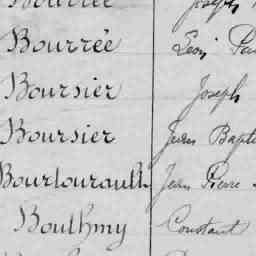 Bourrée Joseph
Bourrée Léon
Boursier Joseph
Boursier Jean
Bourlourault Jean Pierre
Bouthmy Constant